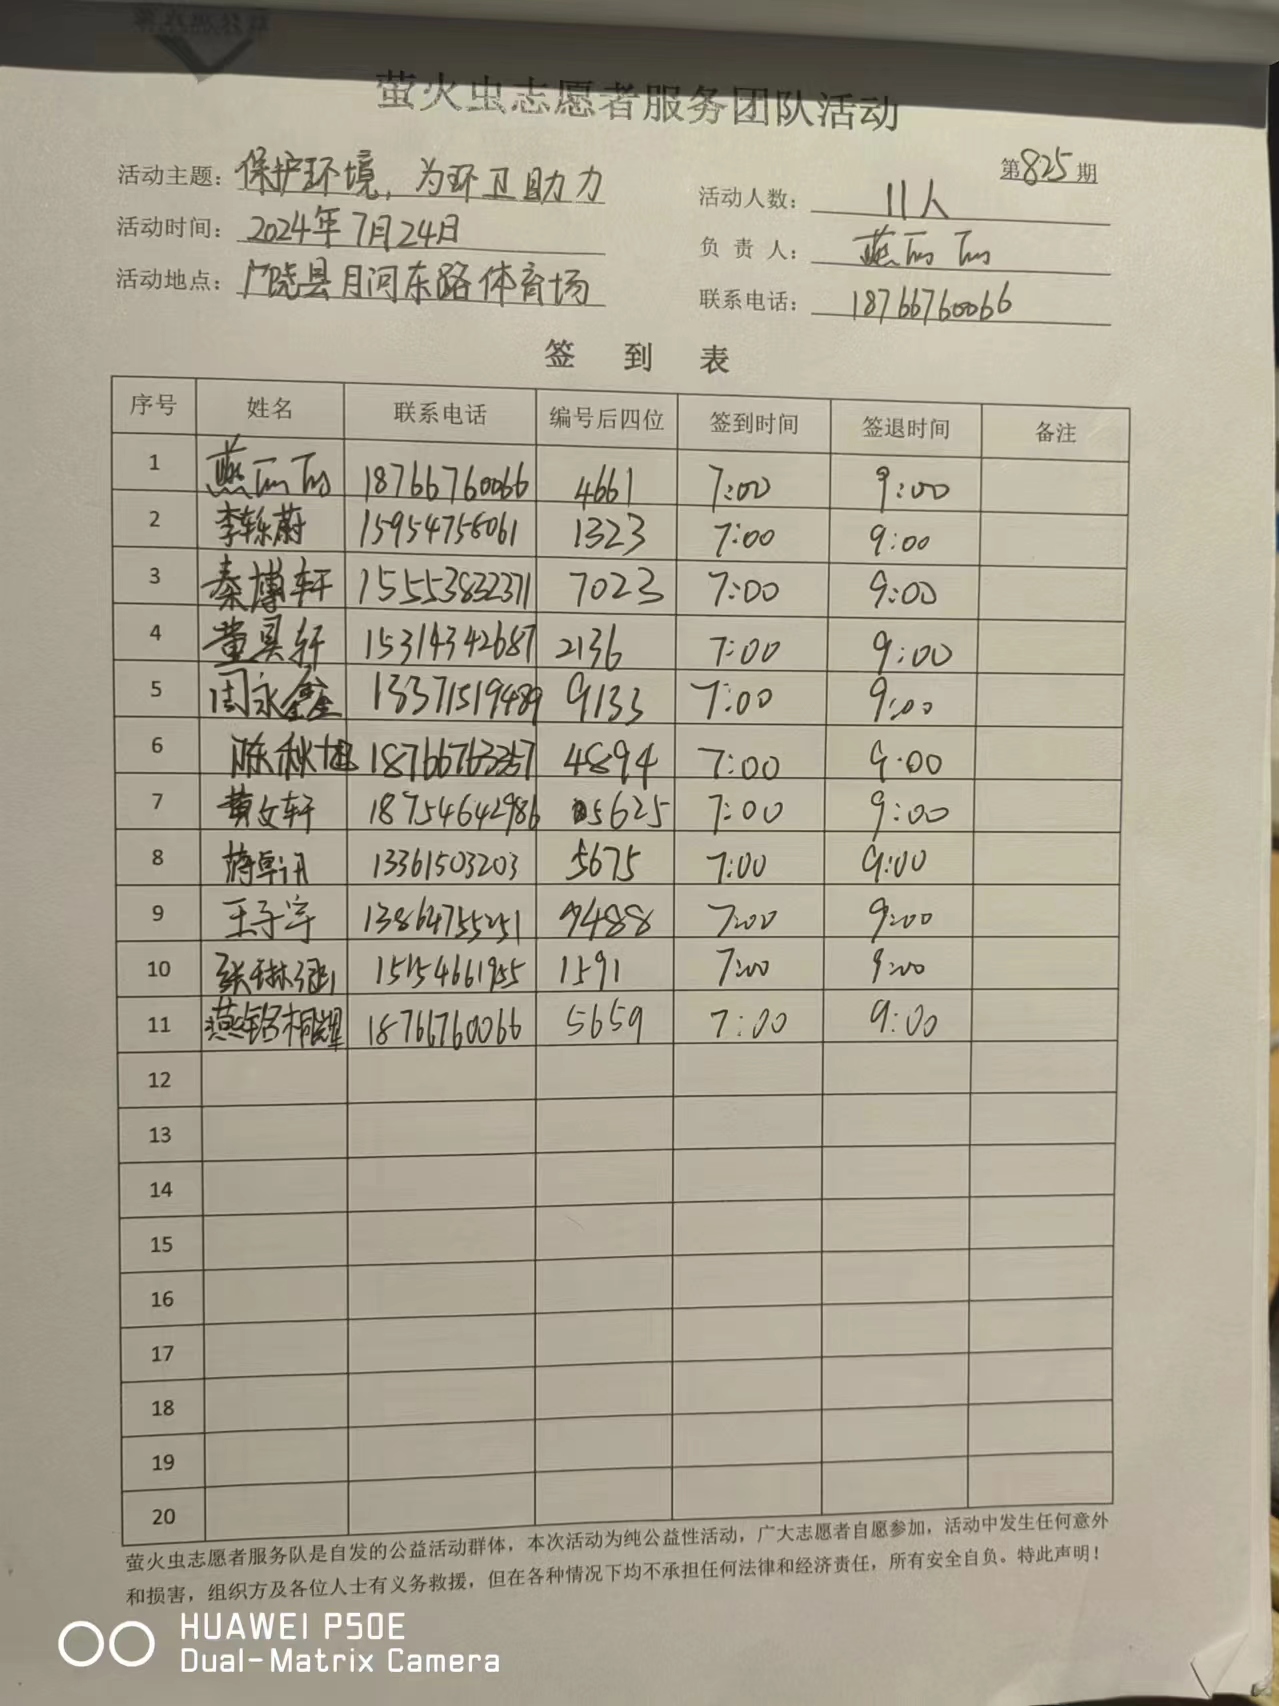 萤火虫志愿者服务团队活动
第825期
活动主题：保护环境，为环卫助力
活动人数：11人
活动时间：2024年7月24日
负责人：燕丽丽
活动地点：广饶县月河东路体育场
联系电话：18766760066
签到表
序号 姓名 联系电话 编号后四位 签到时间 签退时间 备注
1 燕丽丽 18766760066 4661 7:00 9:00
2 李轹蔚 15954758061 1323 7:00 9:00
3 秦博轩 15553832371 7023 7:00 9:00
4 董昊轩 15314342687 2136 7:00 9:00
5 周永鑫 13371519489 9133 7:00 9:00
6 陈秋旭 4894 7:00 9:00
7 黄文轩 18754642986 5625 7:00 9:00
8 蒋卓讯 13361503203 5675 7:00 9:00
9 王子宇 13864755251 7488 7:00 9:00
10 1591 7:00 9:00
11 18766760066 5659 7:00 9:00
12
13
14
15
16
17
18
19
20
萤火虫志愿者服务队是自发的公益活动群体，本次活动为纯公益性活动，广大志愿者自愿参加，活动中发生任何意外
和损害，组织方及各位人士有义务救援，但在各种情况下均不承担任何法律和经济责任，所有安全自负。特此声明！
HUAWEI P50E
Dual-Matrix Camera